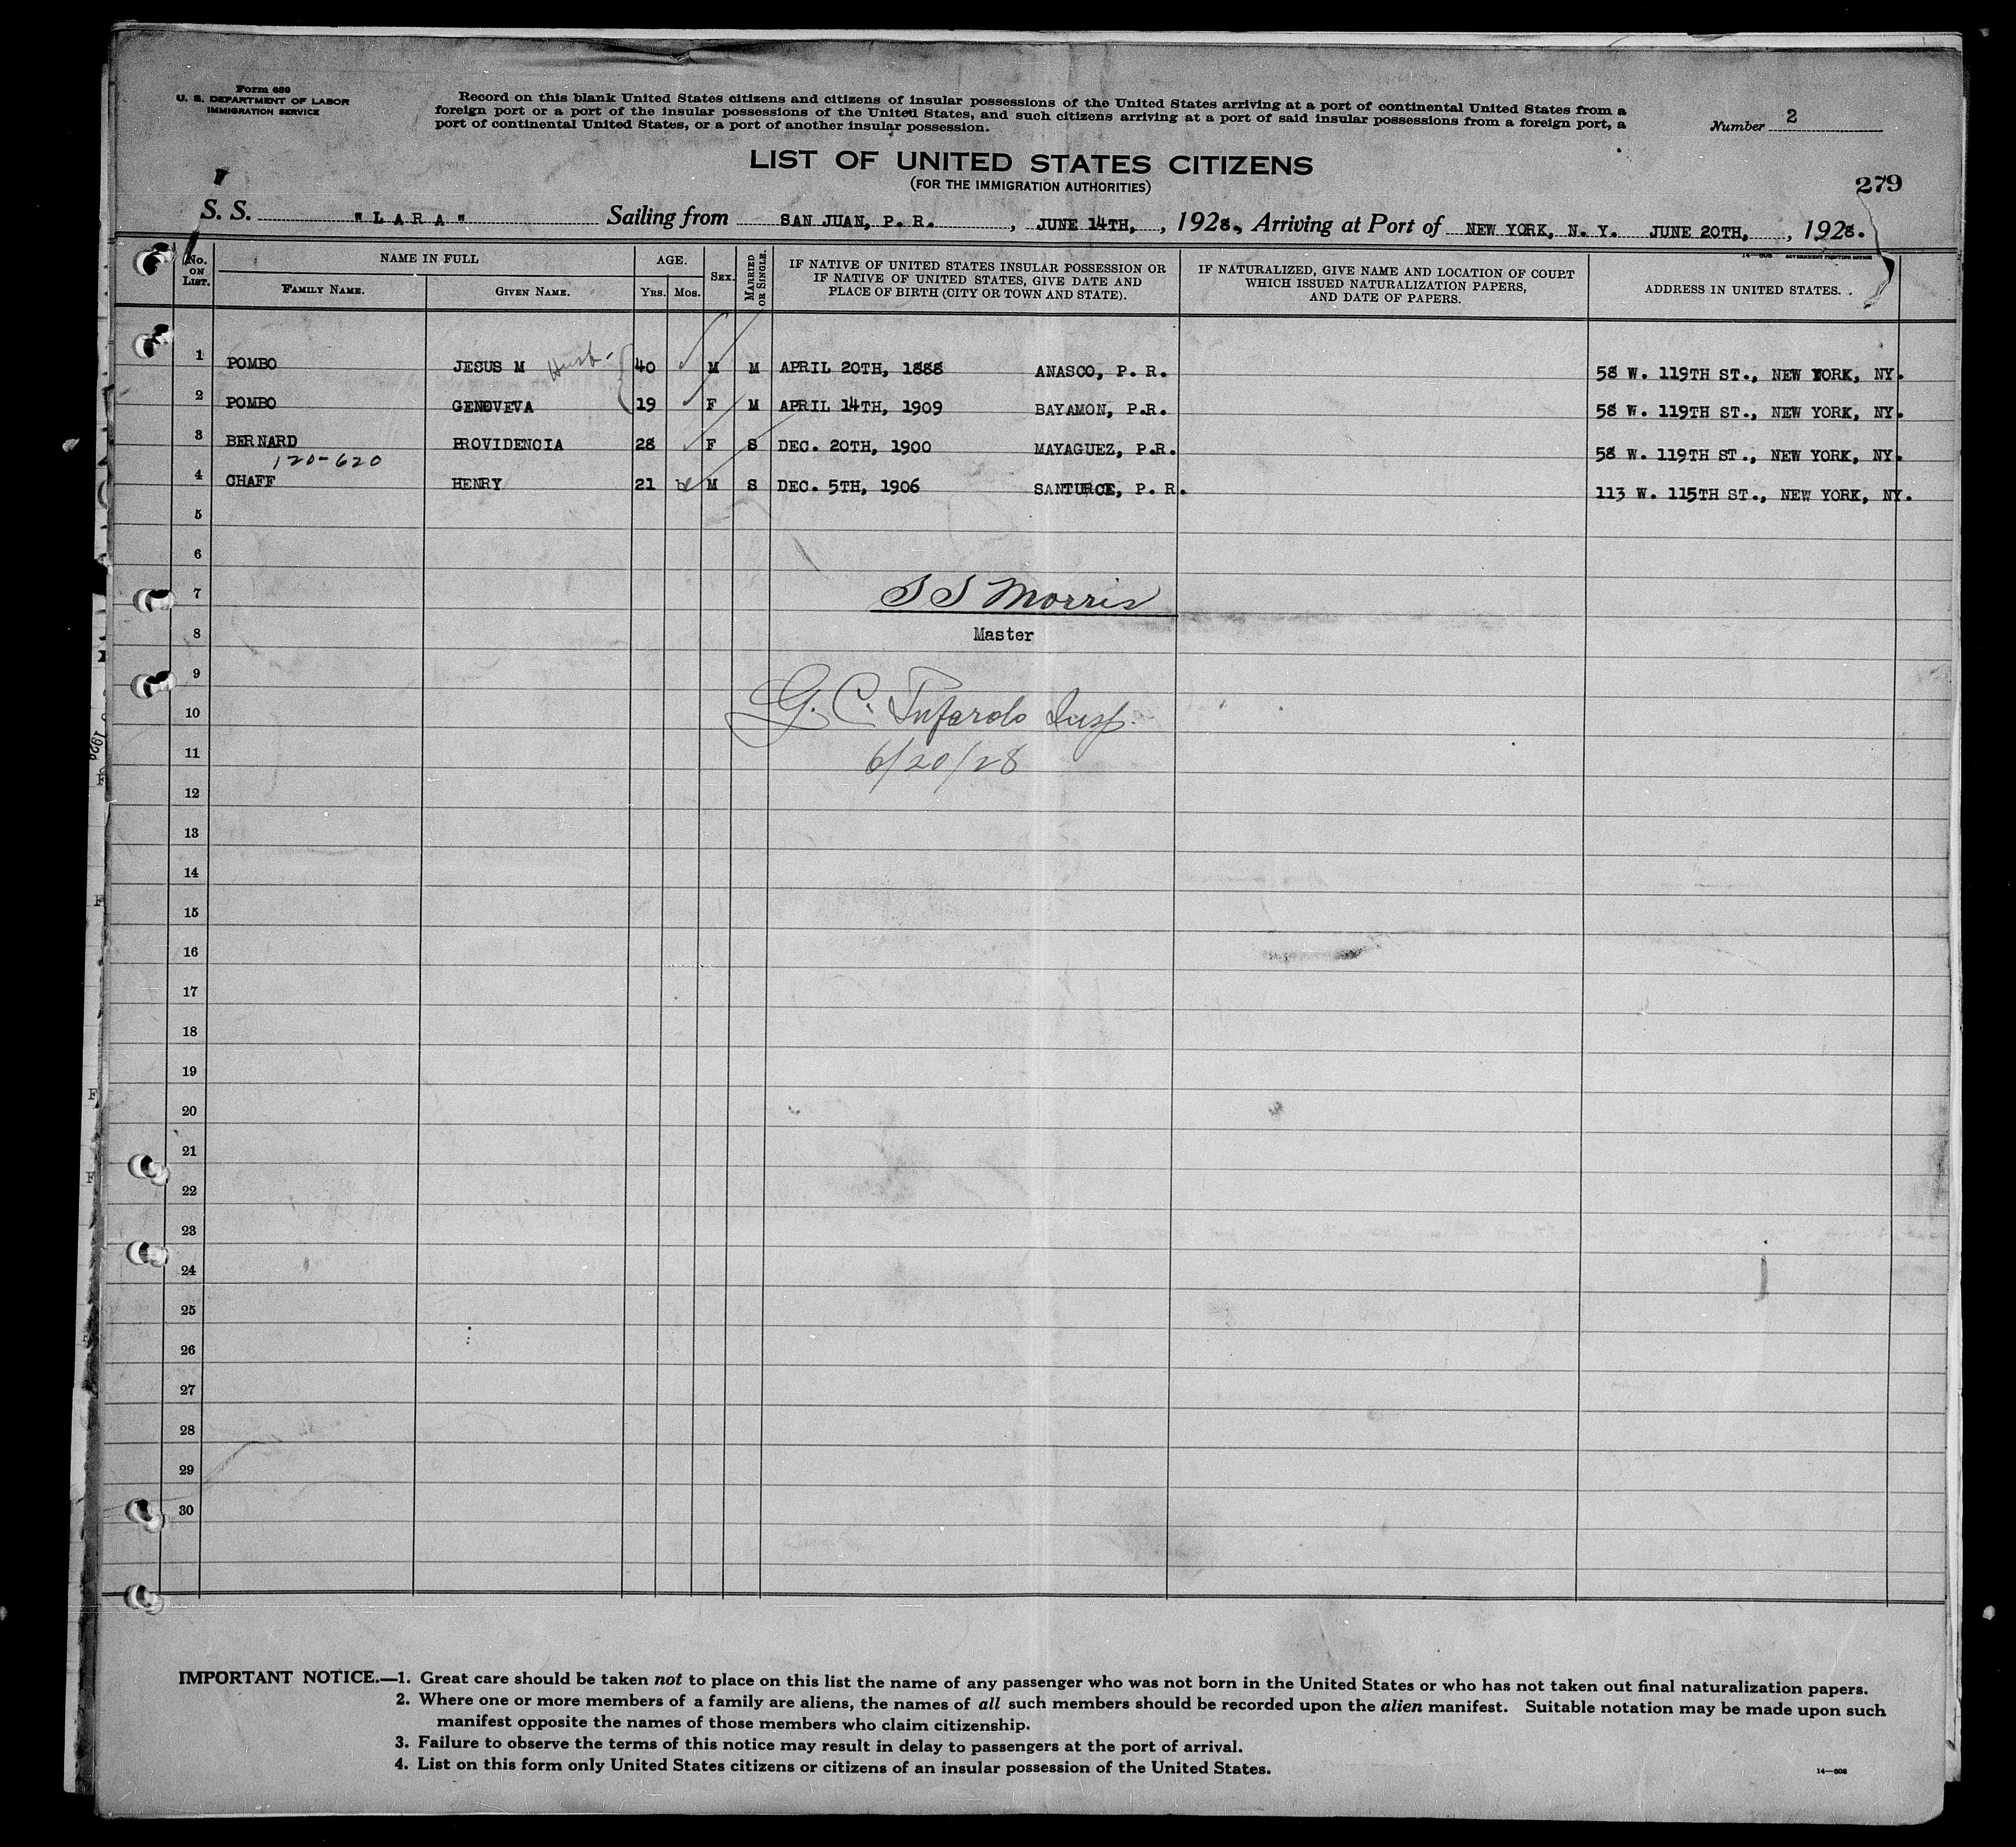 Form 630
U. S. DEPARTMENT OF LABOR
IMMIGRATION SERVICE
Record on this blank United States citizens and citizens of insular possessions of the United States arriving at a port of continental United States from a
foreign port or a port of the insular possessions of the United States, and such citizens arriving at a port of said insular possessions from a foreign port, a
port of continental United States, or a port of another insular possession.
Number 2
LIST OF UNITED STATES CITIZENS
(FOR THE IMMIGRATION AUTHORITIES)
279
S. S. "LARA" Sailing from SAN JUAN, P. R., JUNE 14TH, , 1928., Arriving at Port of NEW YORK, N. Y. JUNE 20TH, , 1928.
14—608 GOVERNMENT PRINTING OFFICE
No. ON LIST.
NAME IN FULL
FAMILY NAME.
GIVEN NAME.
AGE.
YRS. MOS.
SEX.
MARRIED OR SINGLE.
IF NATIVE OF UNITED STATES INSULAR POSSESSION OR
IF NATIVE OF UNITED STATES, GIVE DATE AND
PLACE OF BIRTH (CITY OR TOWN AND STATE).
IF NATURALIZED, GIVE NAME AND LOCATION OF COURT
WHICH ISSUED NATURALIZATION PAPERS,
AND DATE OF PAPERS.
ADDRESS IN UNITED STATES.
1 POMBO JESUS M Husb- 40 M M APRIL 20TH, 1888 ANASCO, P. R. 58 W. 119TH ST., NEW YORK, NY.
2 POMBO GENOVEVA 19 F M APRIL 14TH, 1909 BAYAMON, P.R. 58 W. 119TH ST., NEW YORK, NY.
3 BERNARD PROVIDENCIA 28 F S DEC. 20TH, 1900 MAYAGUEZ, P.R. 58 W. 119TH ST., NEW YORK, NY.
120-620
4 CHAFF HENRY 21 M S DEC. 5TH, 1906 SANTURCE, P. R. 113 W. 115TH ST., NEW YORK, NY.
5
6
7 S S Morris
8 Master
9
10 G. C. Tufarolo Insp.
11 6/20/28
12
13
14
15
16
17
18
19
20
21
22
23
24
25
26
27
28
29
30
IMPORTANT NOTICE.—1. Great care should be taken not to place on this list the name of any passenger who was not born in the United States or who has not taken out final naturalization papers.
2. Where one or more members of a family are aliens, the names of all such members should be recorded upon the alien manifest. Suitable notation may be made upon such
manifest opposite the names of those members who claim citizenship.
3. Failure to observe the terms of this notice may result in delay to passengers at the port of arrival.
4. List on this form only United States citizens or citizens of an insular possession of the United States.
14—608